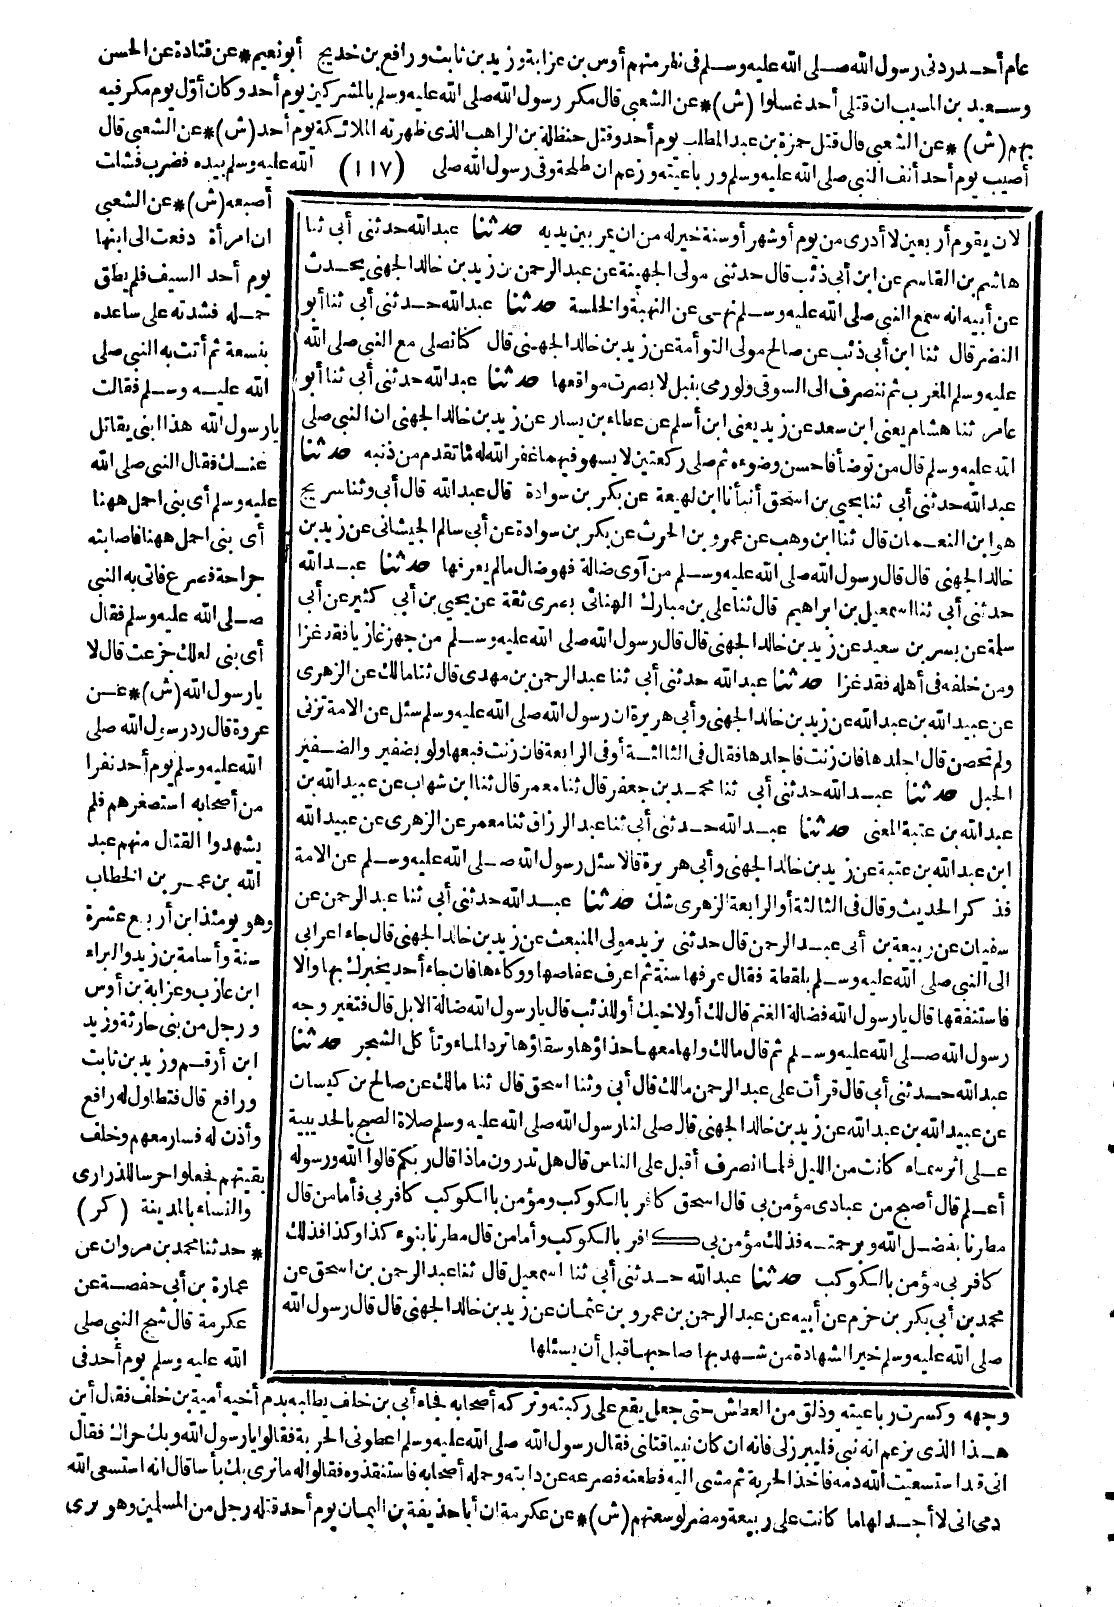 عام أحد ردنى رسول الله صلى الله عليه وسلم فى نفر منهم أوس بن عرابة وزيد بن ثابت ورافع بن خديج أبو نعيم * عن قتادة عن الحسن
وسعيد بن المسيب ان قتلى أحد غسلوا (ش) * عن الشعبى قال مكر رسول الله صلى الله عليه وسلم بالمشركين يوم أحد وكان أول يوم مكر فيه
بهم (ش) * عن الشعبى قال قتل حمزة بن عبد المطلب يوم أحد وقتل حنظلة بن الراهب الذى طهرته الملائكة يوم أحد (ش) * عن الشعبى قال
أصيب يوم أحد أنف النبى صلى الله عليه وسلم ورباعيته وزعم ان طلحة وقى رسول الله صلى (١١٧) الله عليه وسلم بيده فضرب فشلت
لان يقوم أربعين لا أدرى من يوم أو شهر أو سنة خير له من ان يمر بين يديه حدثنا عبد الله حدثنى أبى ثنا
هاشم بن القاسم عن ابن أبى ذئب قال حدثنى مولى الجهينة عن عبد الرحمن بن زيد بن خالد الجهنى يحدث
عن أبيه انه سمع النبى صلى الله عليه وسلم نهى عن النهبة والخلسة حدثنا عبد الله حدثنى أبى ثنا أبو
النضر قال ثنا ابن أبى ذئب عن صالح مولى التوأمة عن زيد بن خالد الجهنى قال كنا نصلى مع النبى صلى الله
عليه وسلم المغرب ثم ننصرف الى السوق ولو رمى بنبل لابصرت مواقعها حدثنا عبد الله حدثنى أبى ثنا أبو
عامر ثنا هشام يعنى ابن سعد عن زيد يعنى ابن أسلم عن عطاء بن يسار عن زيد بن خالد الجهنى ان النبى صلى
الله عليه وسلم قال من توضأ فاحسن وضوءه ثم صلى ركعتين لا يسهو فيهما غفر الله له ما تقدم من ذنبه حدثنا
عبد الله حدثنى أبى ثنا يحيى بن اسحق أنبأنا ابن لهيعة عن بكر بن سوادة قال عبد الله قال أبى وثنا سريج
هو ابن النعمان قال ثنا ابن وهب عن عمرو بن الحرث عن بكر بن سوادة عن أبى سالم الجيشانى عن زيد بن
خالد الجهنى قال قال رسول الله صلى الله عليه وسلم من آوى ضالة فهو ضال مالم يعرفها حدثنا عبد الله
حدثنى أبى ثنا اسمعيل بن ابراهيم قال ثنا على بن مبارك الهنائى بصرى ثقة عن يحيى بن أبى كثير عن أبى
سلمة عن بسر بن سعيد عن زيد بن خالد الجهنى قال قال رسول الله صلى الله عليه وسلم من جهز غازيا فقد غزا
ومن خلفه فى أهله فقد غزا حدثنا عبد الله حدثنى أبى ثنا عبد الرحمن بن مهدى قال ثنا مالك عن الزهرى
عن عبيد الله بن عبد الله عن زيد بن خالد الجهنى وأبى هريرة ان رسول الله صلى الله عليه وسلم سئل عن الامة تزنى
ولم تحصن قال اجلدها فان زنت فاجلدها فقال فى الثالثة أو فى الرابعة فان زنت فبعها ولو بضفير والضفير
الحبل حدثنا عبد الله حدثنى أبى ثنا محمد بن جعفر قال ثنا معمر قال ثنا ابن شهاب عن عبيد الله بن
عبد الله بن عتبة المعنى حدثنا عبد الله حدثنى أبى ثنا عبد الرزاق ثنا معمر عن الزهرى عن عبيد الله
ابن عبد الله بن عتبة عن زيد بن خالد الجهنى وأبى هريرة قالا سئل رسول الله صلى الله عليه وسلم عن الامة
فذكر الحديث وقال فى الثالثة أو الرابعة الزهرى شك حدثنا عبد الله حدثنى أبى ثنا عبد الرحمن عن
سفيان عن ربيعة بن أبى عبد الرحمن قال حدثنى يزيد مولى المنبعث عن زيد بن خالد الجهنى قال جاء اعرابى
الى النبى صلى الله عليه وسلم بلقطة فقال عرفها سنة ثم اعرف عفاصها ووكاءها فان جاء أحد يخبرك بها والا
فاستنفقها قال يا رسول الله فضالة الغنم قال لك أو لاخيك أو للذئب قال يا رسول الله ضالة الابل قال فتغير وجه
رسول الله صلى الله عليه وسلم ثم قال مالك ولها معها حذاؤها وسقاؤها ترد الماء وتأكل الشجر حدثنا
عبد الله حدثنى أبى قال قرأت على عبد الرحمن مالك قال أبى وثنا اسحق قال ثنا مالك عن صالح بن كيسان
عن عبيد الله بن عبد الله عن زيد بن خالد الجهنى قال صلى لنا رسول الله صلى الله عليه وسلم صلاة الصبح بالحديبية
على اثر سماء كانت من الليل فلما انصرف أقبل على الناس قال هل تدرون ماذا قال ربكم قالوا الله ورسوله
أعلم قال أصبح من عبادى مؤمن بى قال اسحق كافر بالكوكب ومؤمن بالكوكب كافر بى فأما من قال
مطرنا بفضل الله وبرحمته فذلك مؤمن بى كافر بالكوكب وأما من قال مطرنا بنوء كذا وكذا فذلك
كافر بى مؤمن بالكوكب حدثنا عبد الله حدثنى أبى ثنا اسمعيل قال ثنا عبد الرحمن بن اسحق عن
محمد بن أبى بكر بن حزم عن أبيه عن عبد الرحمن بن عمرو بن عثمان عن زيد بن خالد الجهنى قال قال رسول الله
صلى الله عليه وسلم خير الشهادة من شهد بها صاحبها قبل أن يسئلها
أصبعه (ش) * عن الشعبى
ان امرأة دفعت الى ابنها
يوم أحد السيف فلم يطق
حمله فشدته على ساعده
بنسعة ثم أتت به النبى صلى
الله عليه وسلم فقالت
يا رسول الله هذا ابنى يقاتل
عنك فقال النبى صلى الله
عليه وسلم أى بنى احمل ههنا
أى بنى احمل ههنا فاصابته
جراحة فصرع فاتى به النبى
صلى الله عليه وسلم فقال
أى بنى لعلك جزعت قال لا
يا رسول الله (ش) * عن
عروة قال رد رسول الله صلى
الله عليه وسلم يوم أحد نفرا
من أصحابه استصغرهم فلم
يشهدوا القتال منهم عبد
الله بن عمر بن الخطاب
وهو يومئذ ابن أربع عشرة
سنة وأسامة بن زيد والبراء
ابن عازب وعرابة بن أوس
ورجل من بنى حارثة وزيد
ابن أرقم وزيد بن ثابت
ورافع قال فتطاول له رافع
وأذن له فسار معهم وخلف
بقيتهم فجعلوا حرسا للذرارى
والنساء بالمدينة (كر)
* حدثنا محمد بن مروان عن
عمارة بن أبى حفصة عن
عكرمة قال شج النبى صلى
الله عليه وسلم يوم أحد فى
وجهه وكسرت رباعيته وذلق من العطاش حتى جعل يقع على ركبتيه وتركه أصحابه فجاء أبى بن خلف يطالبه بدم أخيه أمية بن خلف فقال أين
هذا الذى يزعم انه نبى فليبرز لى فانه ان كان نبيا قتلنى فقال رسول الله صلى الله عليه وسلم اعطونى الحربة فقالوا يا رسول الله وبك حراك فقال
انى قد استسعيت الله دمه فأخذ الحربة ثم مشى اليه فطعنه فصرعه عن دابته وحمله أصحابه فاستنقذوه فقالوا له ما نرى بك بأسا قال انه استسعى الله
دمى انى لا أجد لها ما كانت على ربيعة ومضر لوسعتهم (ش) * عن عكرمة ان أبا حذيفة بن اليمان يوم أحد قتله رجل من المسلمين وهو يرى